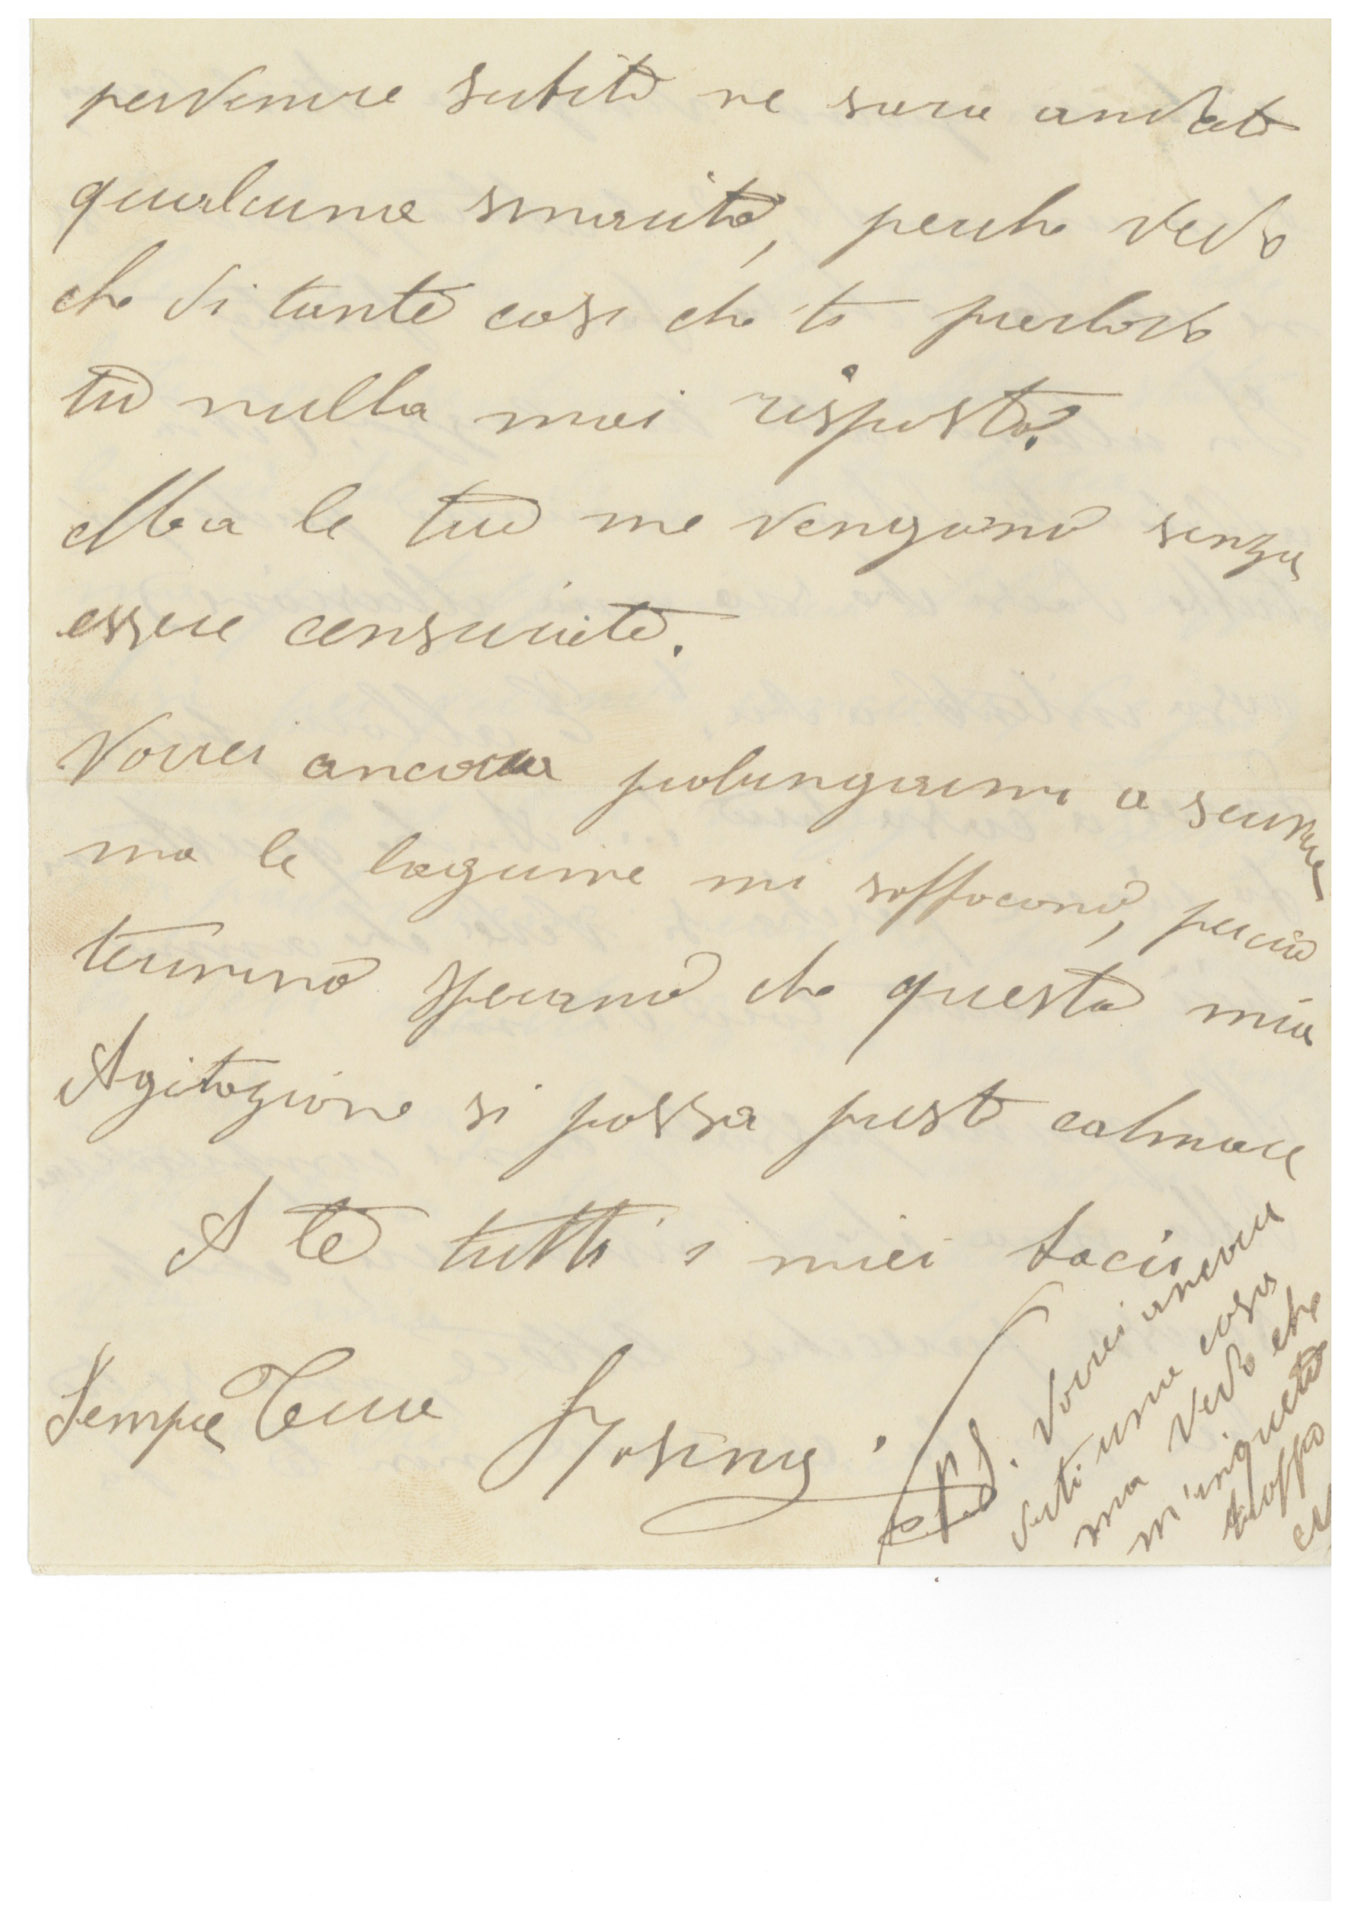 pervenire subito ne sara andato
qualcuna smarita, perche vedo
che di tante cose che ti parlavo
tu nulla mai risposto?
Ma le tue me vengono senza
essere censurate.
Vorrei ancora prolungarmi a scrivere
ma le lagrime mi soffocano, perciò
termino sperano che questa mia
Agitazione si possa presto calmare
A te tutti i miei baci
Sempre Tua
P.S. Vorrei ancora
dirti una cosa
ma vedo che
m'inquieto
troppo